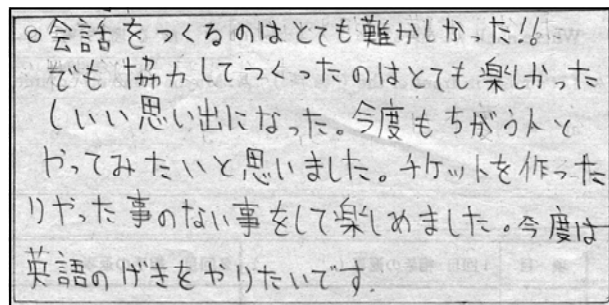 ○会話をつくるのはとても難かしかった!!
でも協力してつくったのはとても楽しかった
しいい思い出になった。今度もちがう人と
やってみたいと思いました。チケットを作った
りやった事のない事をして楽しめました。今度は
英語のげきをやりたいです。